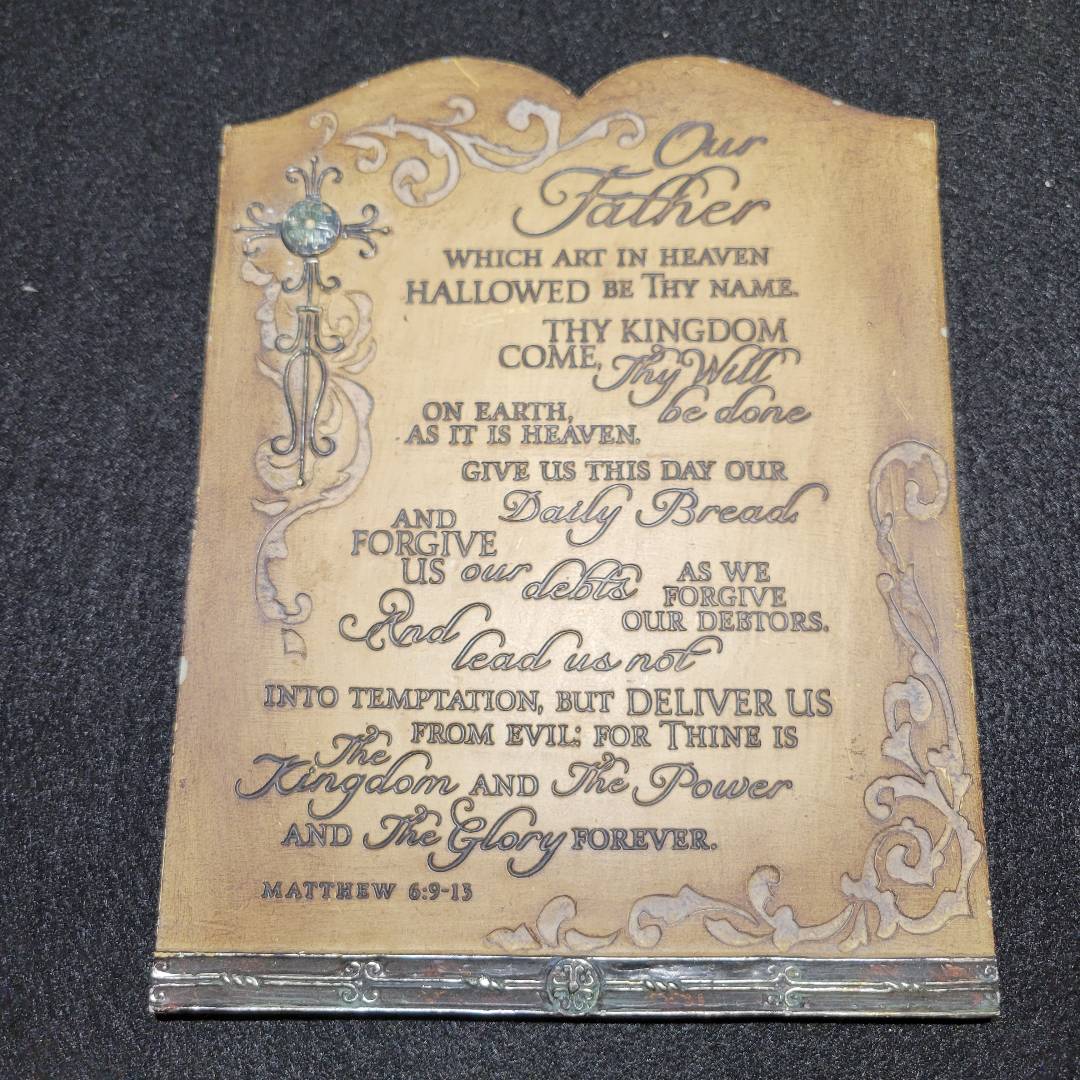 Our
Father
WHICH ART IN HEAVEN
HALLOWED BE THY NAME.
THY KINGDOM
COME, Thy Will
be done
ON EARTH,
AS IT IS HEAVEN.
GIVE US THIS DAY OUR
Daily Bread
AND
FORGIVE
US our debts
AS WE
FORGIVE
OUR DEBTORS.
And
lead us not
INTO TEMPTATION, BUT DELIVER US
FROM EVIL: FOR THINE IS
The
Kingdom AND The Power
AND The Glory FOREVER.
MATTHEW 6:9-13